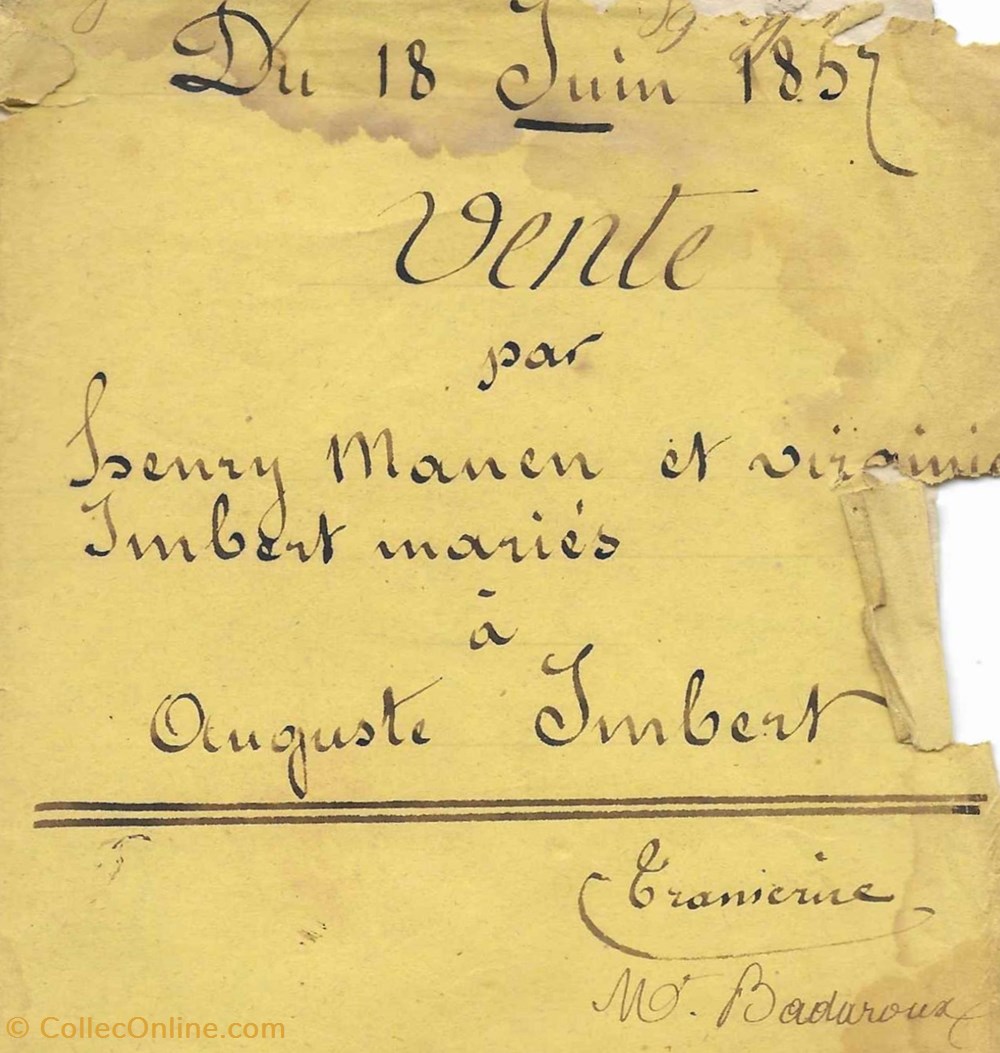 Du 18 Juin 1857
Vente
par
henry Manen et virginie
Imbert mariés
à
Auguste Imbert
Transcrire
Mt. Badaroux
© CollecOnline.com